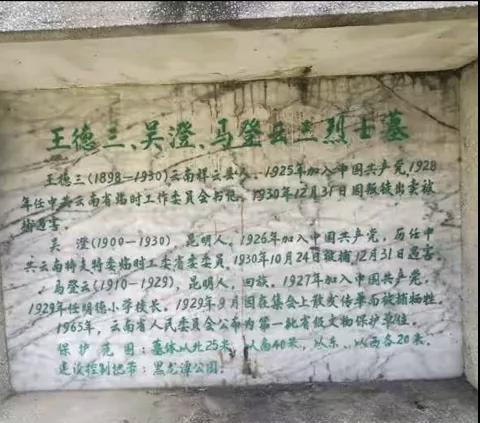 王德三、吴澄、马登云三烈士墓
王德三(1898-1930)云南祥云县人。1925年加入中国共产党,1928
年任中共云南省临时工作委员会书记。1930年12月31日因叛徒出卖被
捕遇害。
吴 澄(1900-1930),昆明人。1926年加入中国共产党,历任中
共云南特支特委临时工委省委委员,1930年10月24日被捕,12月31日遇害。
马登云(1910-1929),昆明人,回族。1927年加入中国共产党,
1929年任明德小学校长。1929年9月因在集会上散发传单而被捕牺牲。
1965年,云南省人民委员会公布为第一批省级文物保护单位。
保 护 范 围:墓体以北25米,以南40米,以东、以西各20米。
建设控制地带:黑龙潭公园。